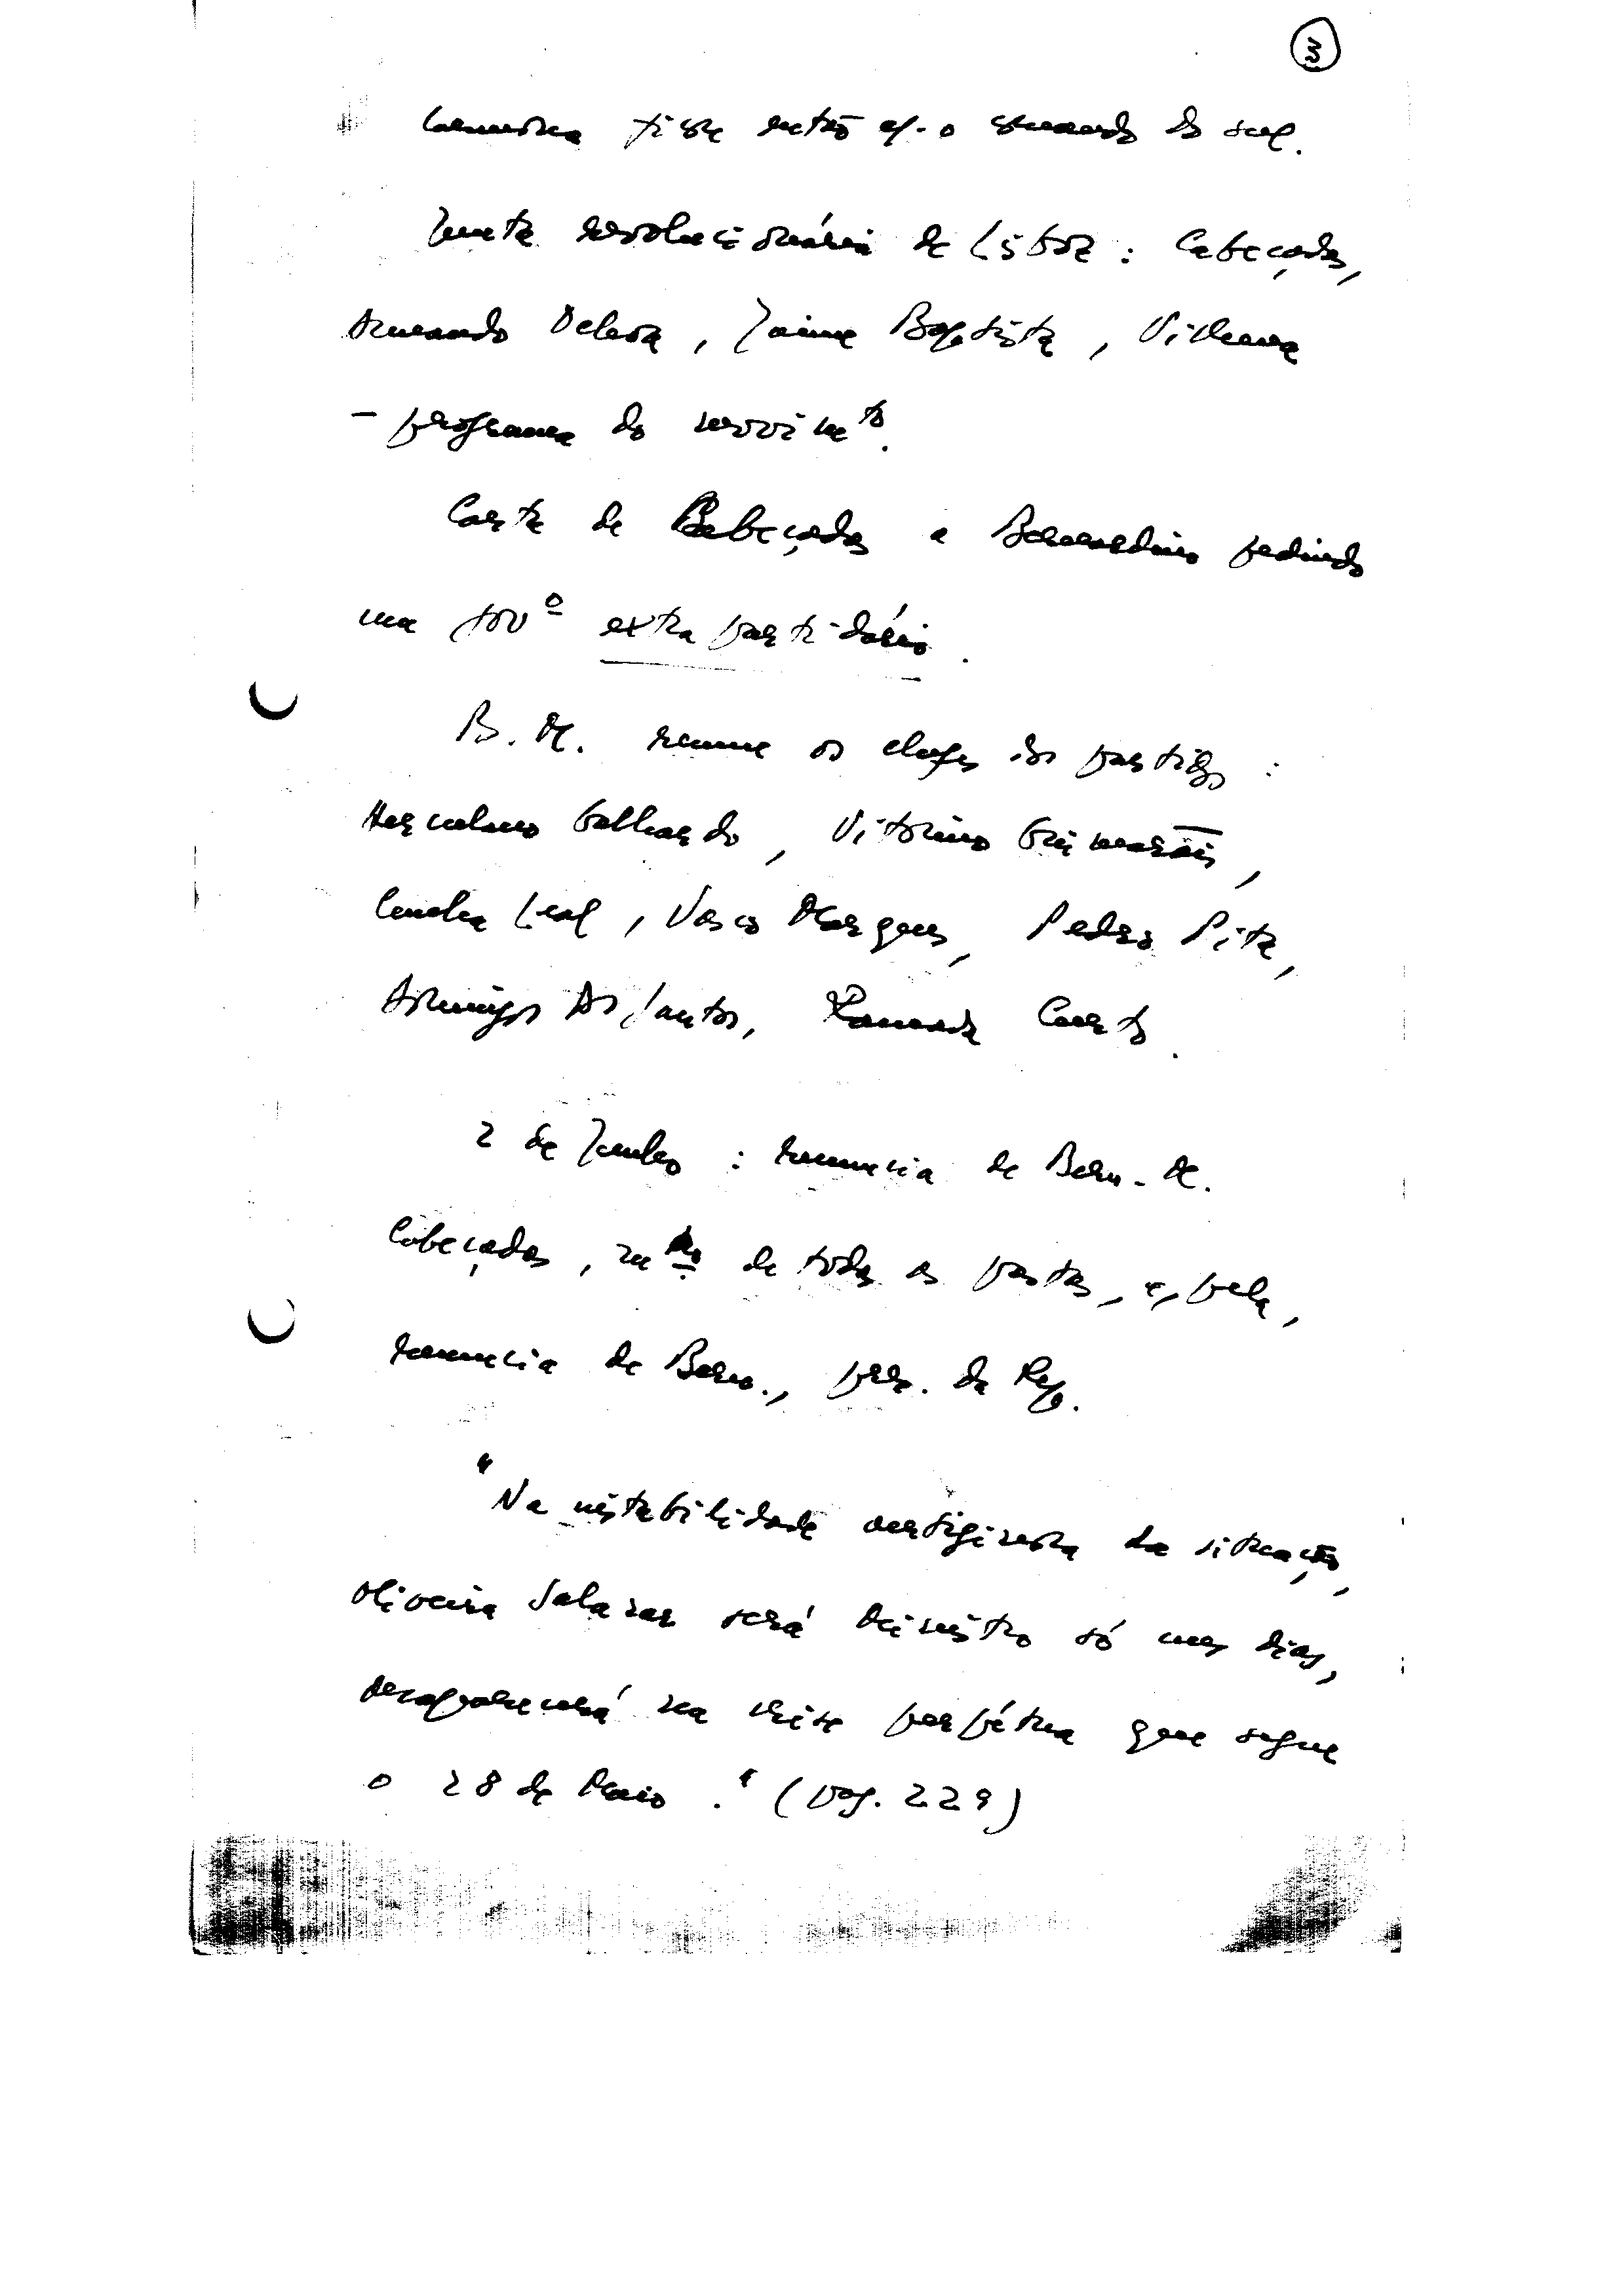 3
Carmona fica então c/ o comando do sul.
Junta revolucionária de Lisboa: Cabeçadas,
Armando Ochoa, Jaime Baptista, Vilhena
– programa do movimto.
Carta de Cabeçadas a Bernardino pedindo
um govº extra partidário.
B. M. reune os chefes dos partidos:
Herculano Galhardo, Vitorino Guimarães,
Cunha Leal, Vasco Marques, Pedro Pita,
dos Santos, Ramada Curto.
2 de Junho: renuncia de Bern. M.
Cabeçadas, mtro de todas as pastas, e, pela,
renuncia de Bern., pres. da Rep.
"Na instabilidade vertiginosa da situação,
Oliveira Salazar será ministro só uns dias,
desaparecerá na crise perpétua que segue
o 28 de Maio." (pag. 229)